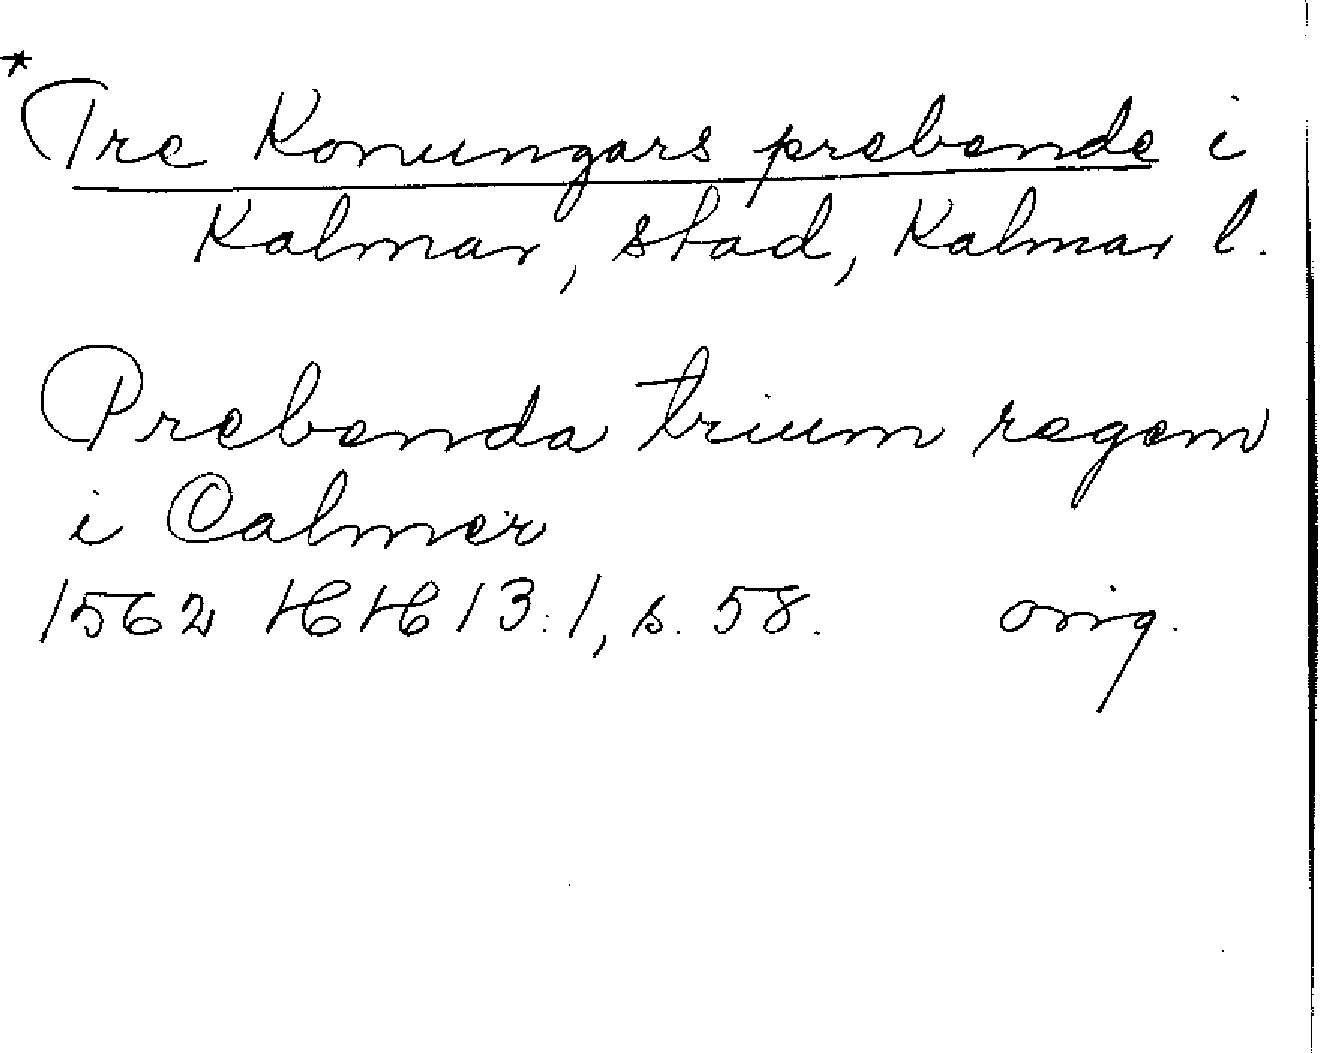 *
Tre Konungars prebende i
Kalmar, stad, Kalmar l.
Prebenda trium regem
i Calmer
1562 HH 13:1, s. 58. orig.